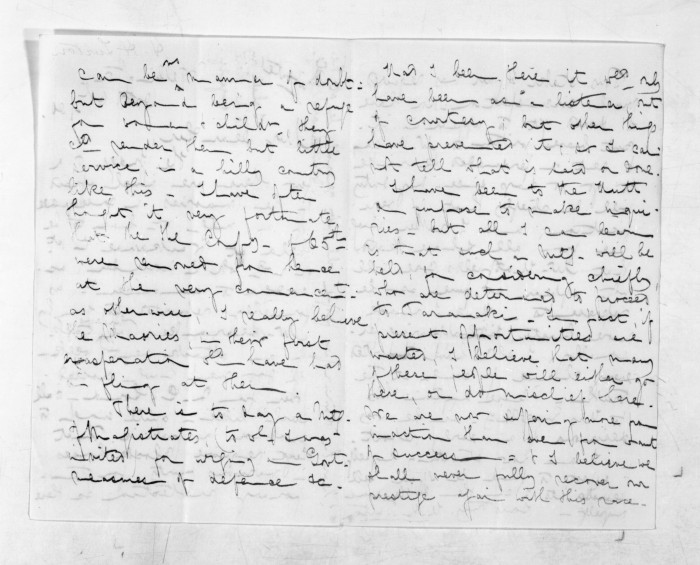 can be no manner of doubt -
but beyond being a refuge
for women & children they
cd render them but little
service, in a hilly country
like this I have often
thought it very fortunate
that the two Compys of 65th
were removed from hence
at the very commencet -
as otherwise, I really believe
the Maories, in their first
exasperation wd have had
a fling at them
There is to day a Mtg
of Magistrates (to wh. I was
invited) for urging on Govt.
measures of defence &c.
Had I been there it wd only
have been as a listener, out
of courtesy, but other things
have prevented it, so I can
not tell what is said or done.
I have been to the North
on purpose to make inqui-
ries - but all I can learn
is that such a Mtg - will be
held for considering chiefly
who are determined to proceed
to Taranaki - in fact, if
present opportunities are
wasted I believe that many
of these people will either go
there, or do mischief here.
We are now suffering more from
inaction than ever from want
of success - & I believe we
shall never fully recover our
prestige again with this race.